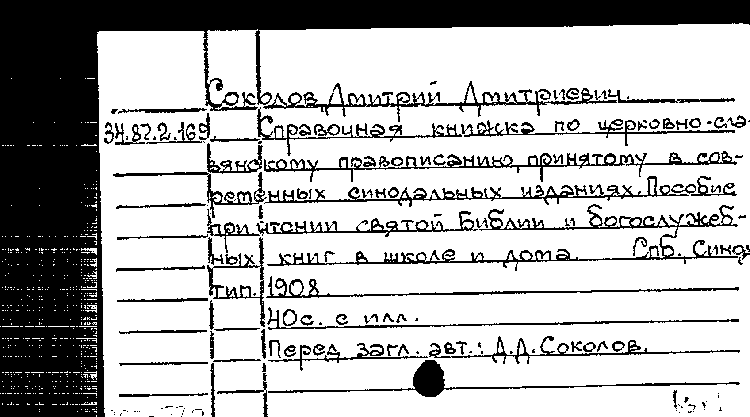 Соколов, Дмитрий Дмитриевич.
34.82.2.169. Справочная книжка по церковно-сла-
вянскому правописанию, принятому в сов-
ременных синодальных изданиях. Пособие
при чтении святой Библии и богослужеб-
ных книг в школе и дома. Спб., Синод.
тип. 1908.
40с. с илл.
Перед загл. авт.: Д.Д. Соколов.